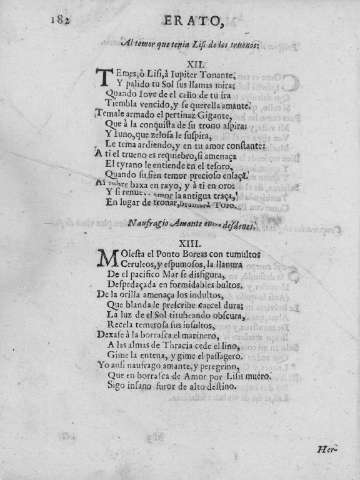 182 ERATO,
Al temor que tenia Lisi de los truenos.
XII.
TEmes, ò Lisi, à Iupiter Tonante,
Y palido tu Sol sus llamas mira;
Quando Iove de el ceño de tu ira
Tiembla vencido, y se querella amante.
Temale armado el pertinaz Gigante,
Que à la conquista de su trono aspira;
Y Iuno, que zelosa le suspira,
Le tema ardiendo, y en tu amor constante:
A ti el trueno es requiebro, si amenaça
El tyrano le entiende en el tesoro,
Quando su sien temor precioso enlaça.
Al baxa en rayo, y à ti en oro:
Y si la antigua traça,
En lugar de tronar, Toro.
Naufragio Amante entre desdenes.
XIII.
MOlesta el Ponto Boreas con tumultos
Ceruleos, y espumosos, la llanura
De el pacifico Mar se disfigura,
Despedaçada en formidables bultos.
De la orilla amenaça los indultos,
Que blanda le prescribe carcel dura;
La luz de el Sol titubeando obscura,
Recela temerosa sus insultos,
Dexase à la borrasca el marinero,
A las almas de Thracia cede el lino,
Gime la entena, y gime el passagero.
Yo ansi naufrago amante, y peregrino,
Que en borrasca de Amor por Lisis muero.
Sigo insano furor de alto destino.
Her-